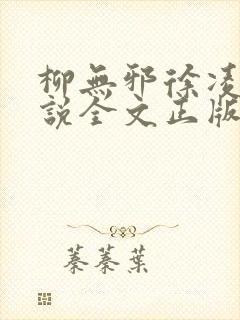 柳無邪徐凌
說全文正版
蓁蓁葉